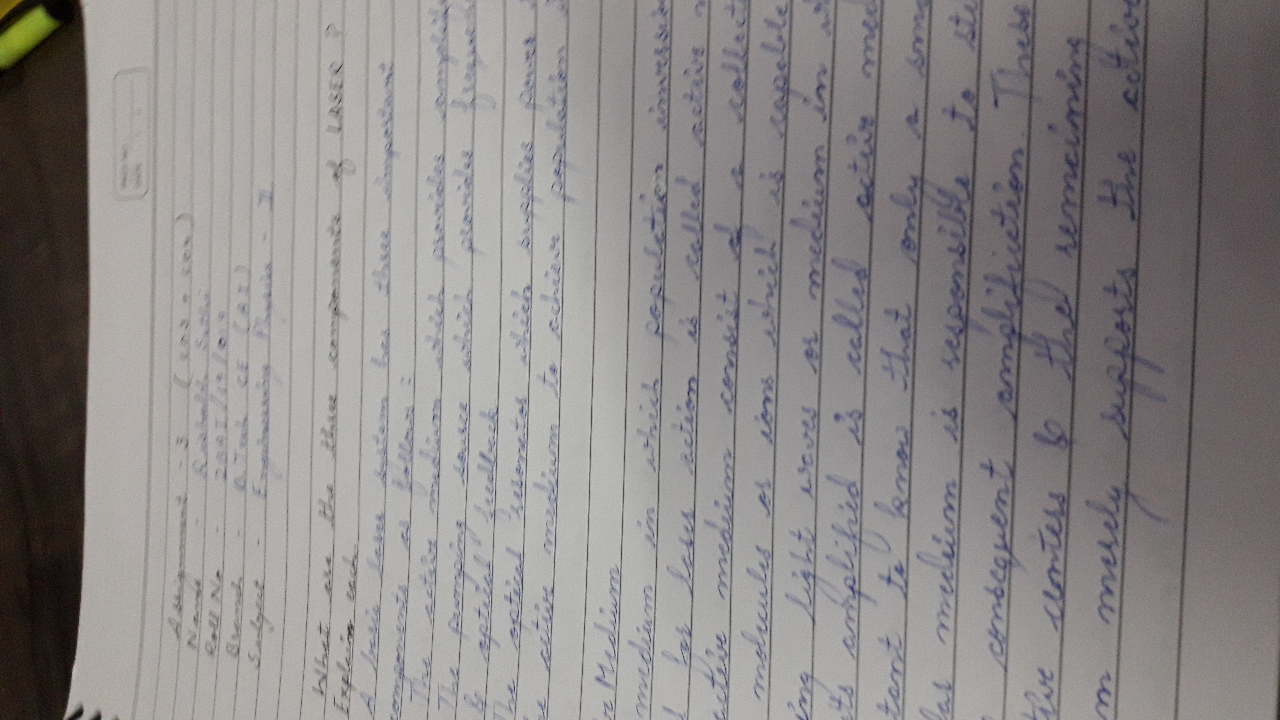 Assignment - 3 (
Name -
Roll No -
Branch - B.Tech CE (AI)
Subject - Engineering Physics - II
What are the three components of LASER ?
Explain each.
A basic laser system has three important
components as follows :
The active medium which provides amplif
The pumping source which provides freque
& optical feedback
The optical resonator which supplies power
he active medium to achieve population
ve Medium
medium in which population inversio
d for laser action is called active m
active medium consist of a collect
molecules or ions which is capable
ing light waves or medium in w
ets amplified is called active med
tant to know that only a sma
lar medium is responsible to sti
consequent amplification. These
tive centers & the remaining
m merely supports the active